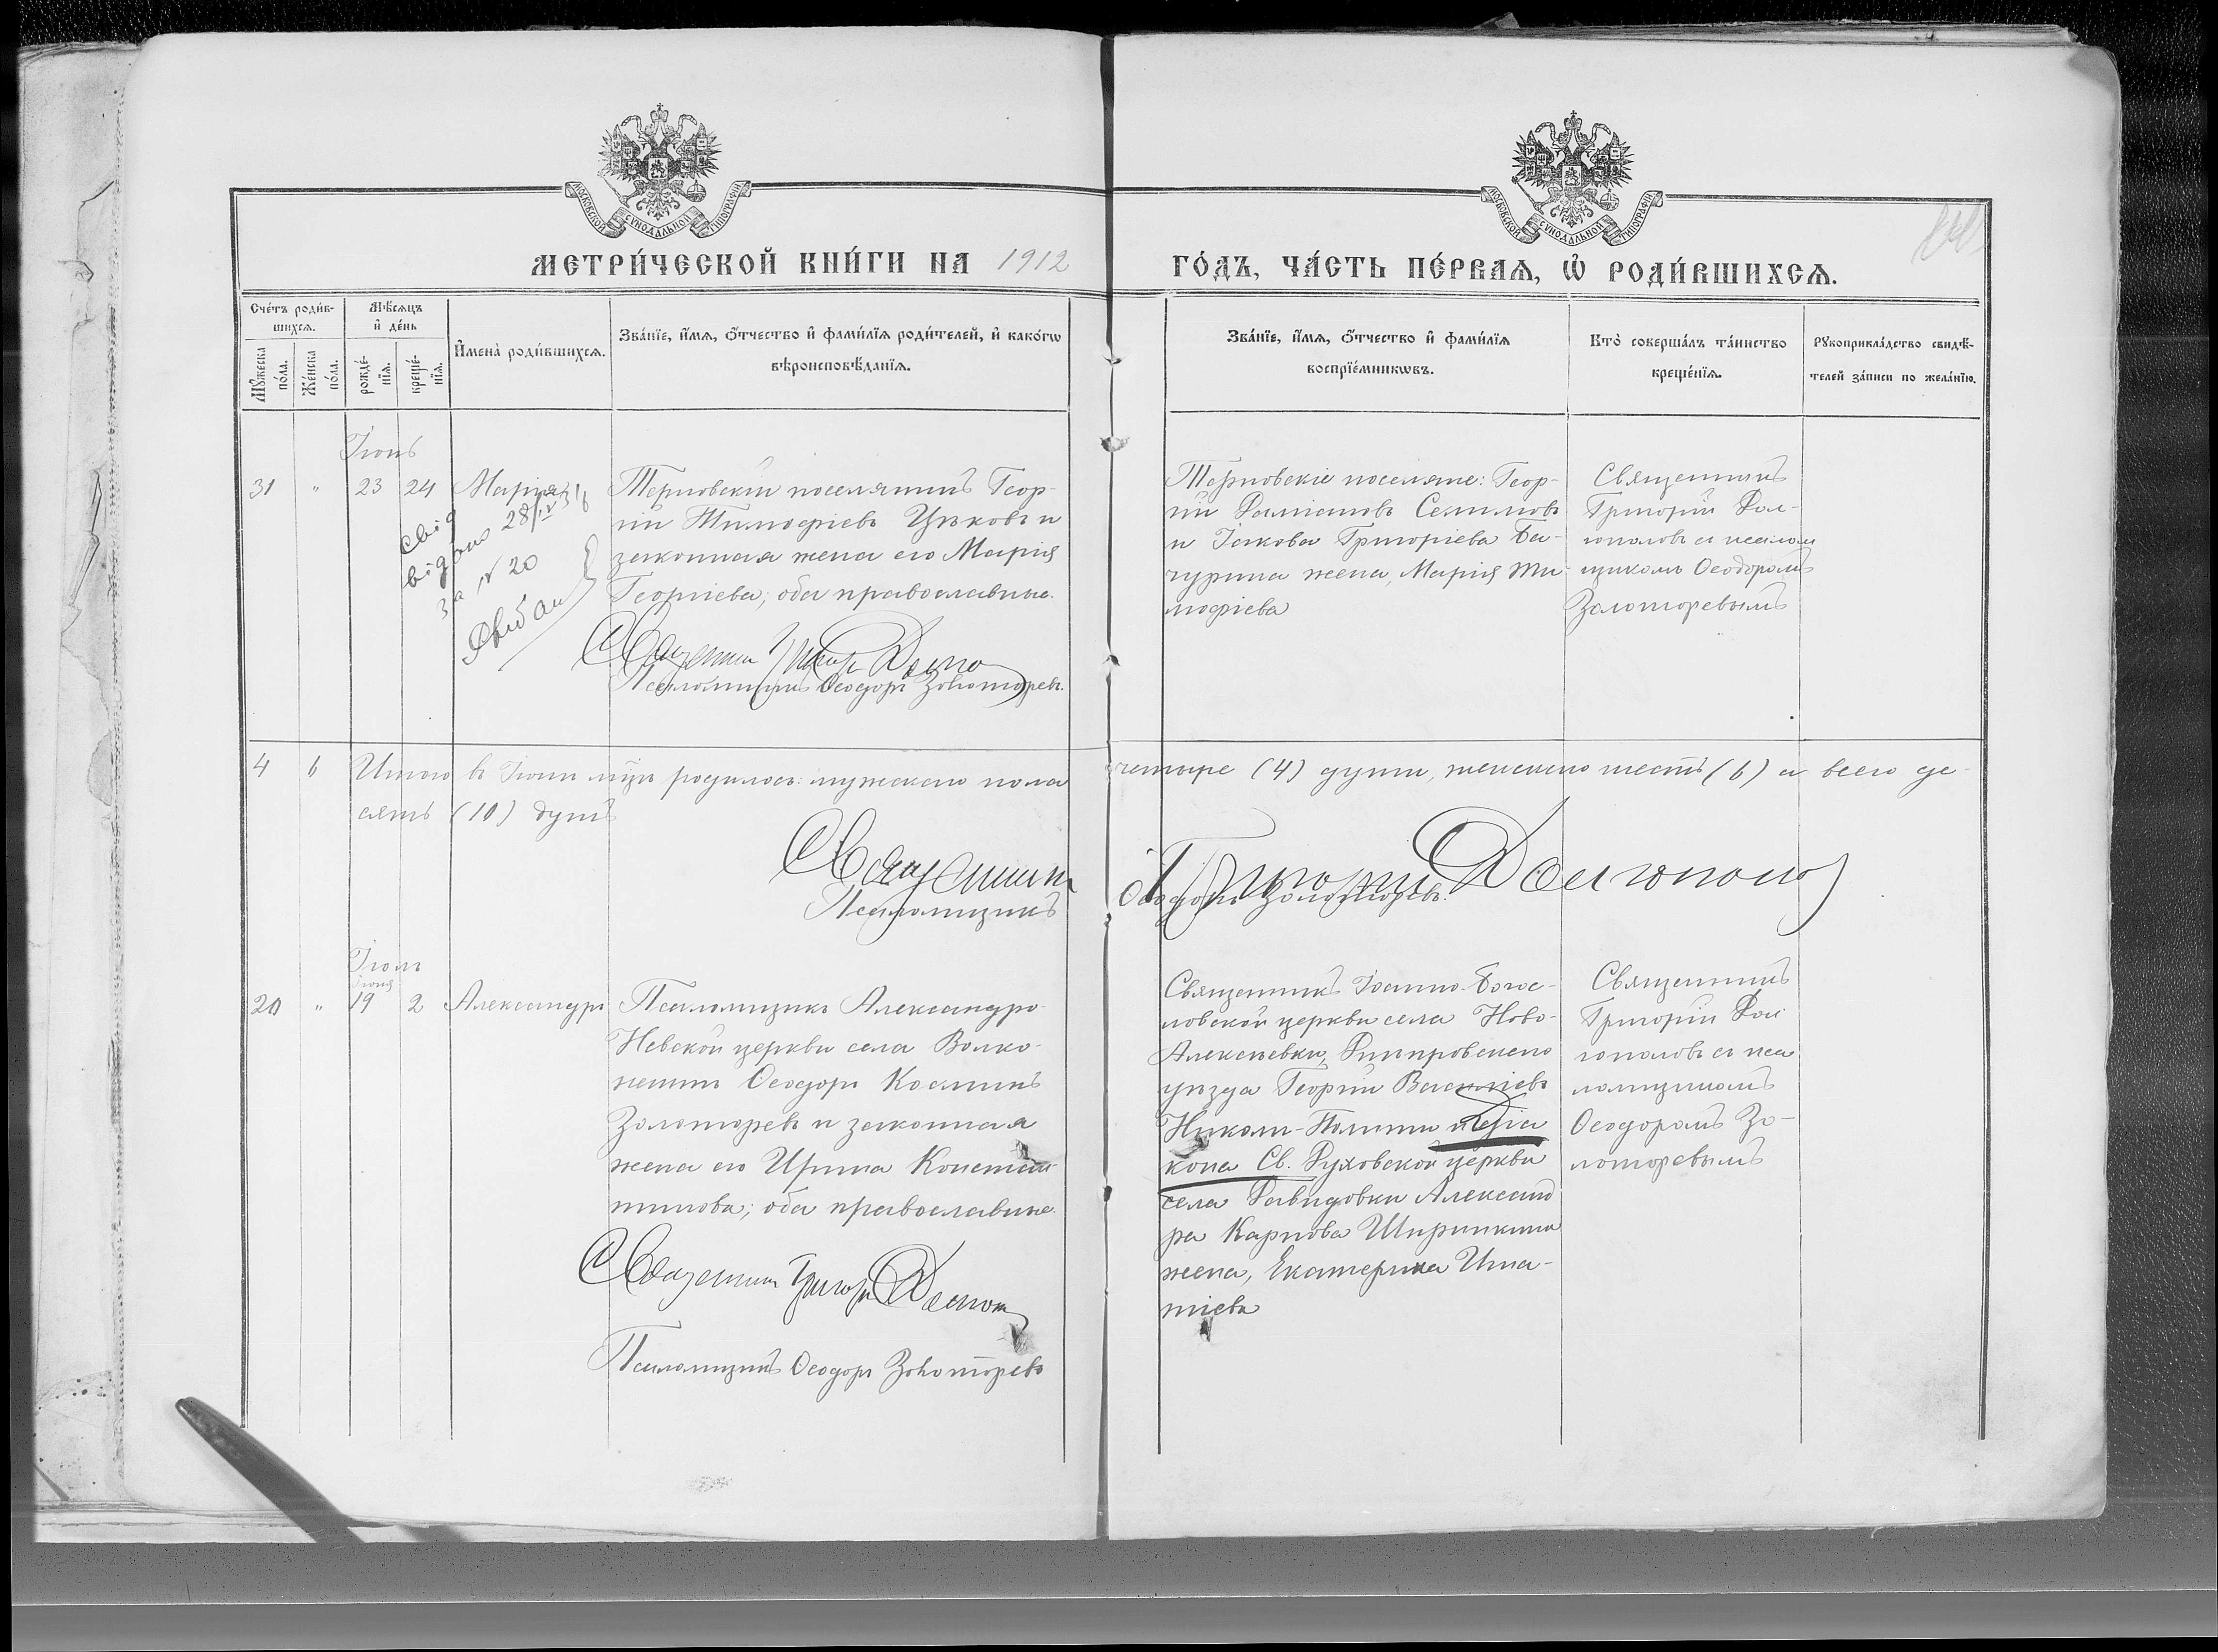 МОСКОВСКОЙ СѴНОДАЛЬНОЙ ТИПОГРАФІИ
МОСКОВСКОЙ СѴНОДАЛЬНОЙ ТИПОГРАФІИ
МЕТРИ́ЧЕСКОЙ КНИ́ГИ НА 1912 ГО́ДЪ, ЧА́СТЬ ПЕ́РВАѦ, Ѽ РОДИ́ВШИХСѦ.
Сче́тъ роди́в-
шихсѧ.
Мꙋжеска по́ла.
Же́нска по́ла.
Мѣ́сѧцъ
и҆ де́нь
рожде́-
нїѧ.
креще́-
нїѧ.
И҆мена̀ роди́вшихсѧ.
Зва́нїе, и҆́мѧ, ѻ҆́тчество и҆ фами́лїѧ роди́телей, и҆ како́гѡ
вѣроисповѣ́данїѧ.
Зва́нїе, и҆́мѧ, ѻ҆́тчество и҆ фами́лїѧ
воспрїе́мникѡвъ.
Кто̀ соверша́лъ та́инство
креще́нїѧ.
Рꙋкоприкла́дство свидѣ́-
телей за́писи по жела́нїю.
Іюнь
31 " 23 24 Марія
свід
видано 28/
за № 20
Терновскій поселянинъ Геор-
гій Тимофіевъ Цѣковъ и
законная жена его Марія
Георгіева; оба православные.
Священникъ Григорій
Псаломщикъ Ѳеодоръ Золоторевъ.
Терновскіе поселяне: Геор-
гій Даміановъ Семиловъ
и Іакова Григоріева Ба-
чурина жена, Марія Ти-
мофіева
Священникъ
Григорій Дол-
гополовъ съ псалом
щикомъ Ѳеодоромъ
Золоторевымъ
4 6 Итого въ Іюнѣ мцѣ родилось: мужескаго пола четыре (4) души, женскаго шесть (6) а всего де-
сять (10) душъ
Священникъ Григорій Долгополов
Псаломщикъ Ѳеодоръ Золоторевъ.
Іюль
Іюня
20 " 19 2 Александръ
Псаломщикъ Александро-
Невской церкви села Волко-
нешты Ѳеодоръ Косминъ
Золоторевъ и законная
жена его Ирина Констан-
тинова; оба православные.
Священникъ Григорій
Псаломщикъ Ѳеодоръ Золоторевъ
Священникъ Іоанно-Богос-
ловской церкви села Ново-
Алексѣевки, Днѣпровскаго
уѣзда Георгій Василіевъ
и Діа
кона Св. Духовской церкви
села Давидовки Александ
ра Карпова Ширинкина
жена, Екатерина Игна-
тіева
Священникъ
Григорій Дол
гополовъ съ пса
ломщикомъ
Ѳеодоромъ Зо-
лоторевымъ